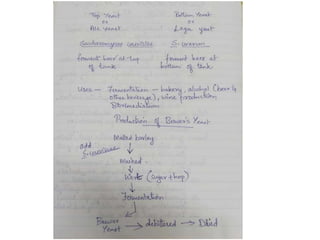 Top Yeast
or
Ale yeast
Saccharomyces cerevisiae
ferment beer at top
of tank
Bottom Yeast
or
Lager yeast
S.
ferment beer at
bottom of tank
Uses — Fermentation — bakery, alcohol (beer &
other beverage), wine production,
Bioremediation
Production of Brewer's Yeast
Malted barley
add
Mashed
Wort (sugar + hop)
Fermentation
Brewer
Yeast → debittered → Dried